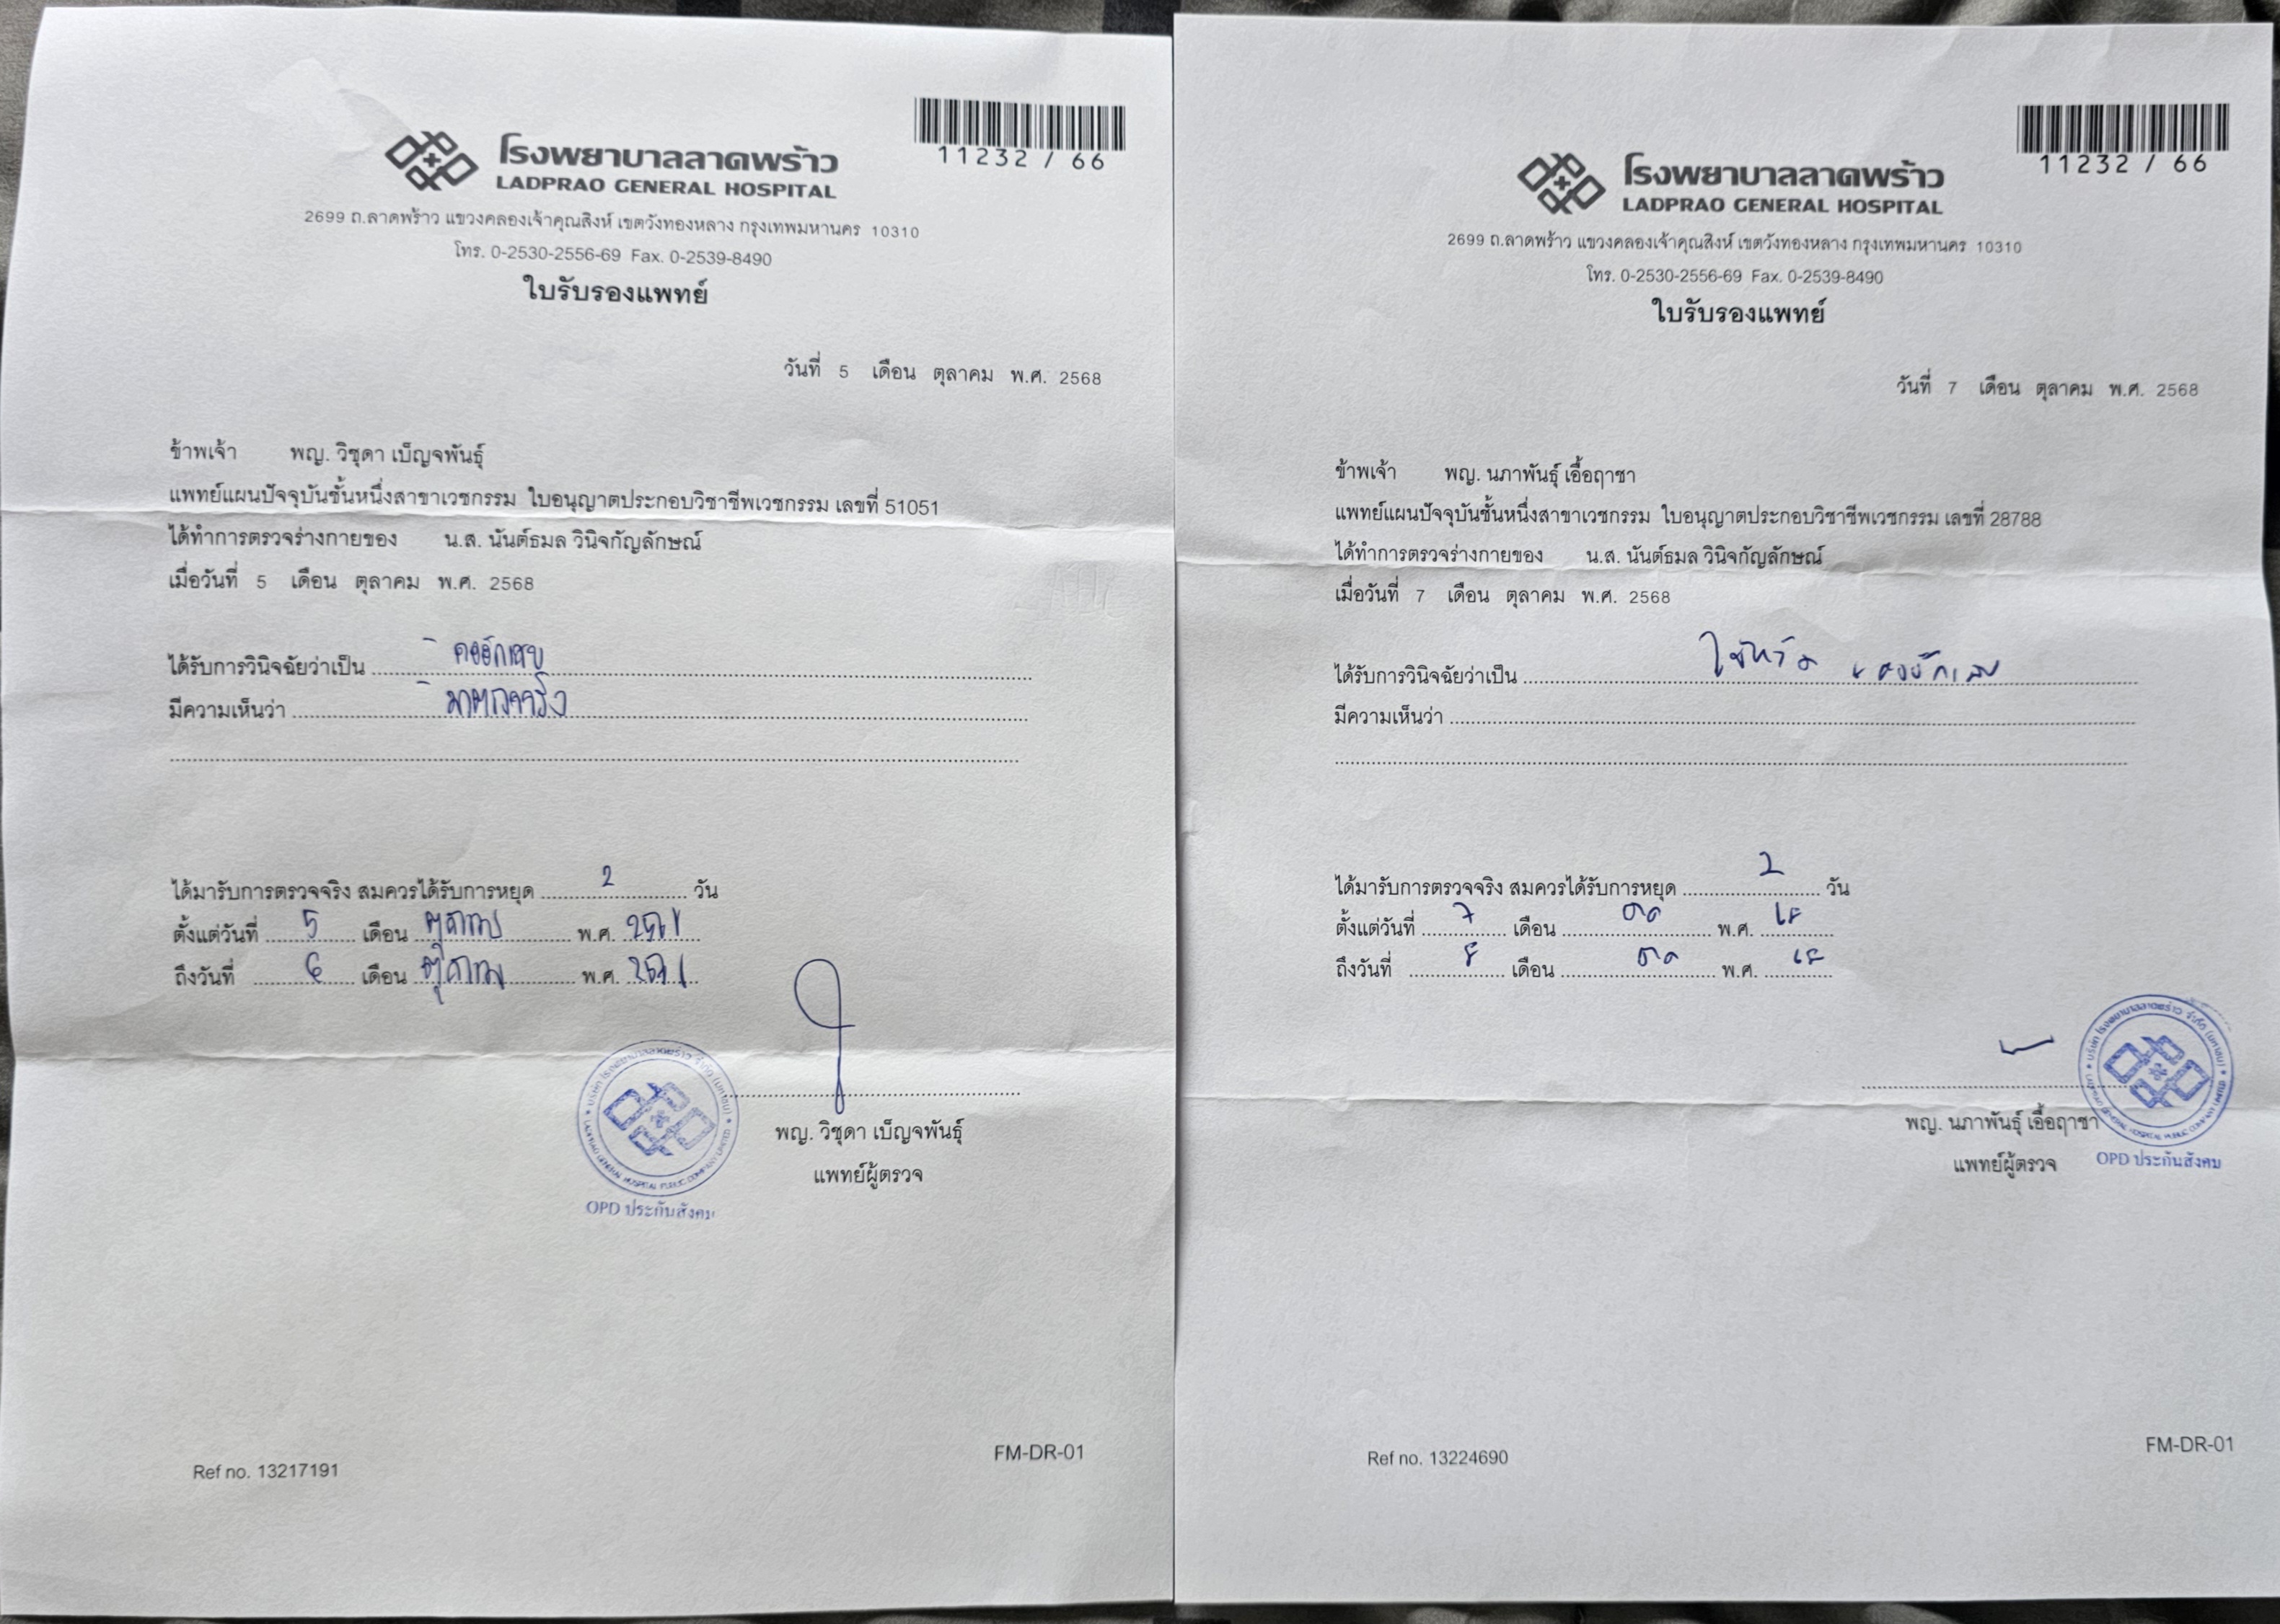 11232 / 66
โรงพยาบาลลาดพร้าว
LADPRAO GENERAL HOSPITAL
2699 ถ.ลาดพร้าว แขวงคลองเจ้าคุณสิงห์ เขตวังทองหลาง กรุงเทพมหานคร 10310
โทร. 0-2530-2556-69 Fax. 0-2539-8490
ใบรับรองแพทย์
วันที่ 5 เดือน ตุลาคม พ.ศ. 2568
ข้าพเจ้า พญ. วิชุดา เบ็ญจพันธุ์
แพทย์แผนปัจจุบันชั้นหนึ่งสาขาเวชกรรม ใบอนุญาตประกอบวิชาชีพเวชกรรม เลขที่ 51051
ได้ทำการตรวจร่างกายของ น.ส. นันต์ธมล วินิจกัญลักษณ์
เมื่อวันที่ 5 เดือน ตุลาคม พ.ศ. 2568
ได้รับการวินิจฉัยว่าเป็น คออักเสบ
มีความเห็นว่า มาตรวจจริง
ได้มารับการตรวจจริง สมควรได้รับการหยุด 2 วัน
ตั้งแต่วันที่ 5 เดือน ตุลาคม พ.ศ.
ถึงวันที่ 6 เดือน ตุลาคม พ.ศ.
พญ. วิชุดา เบ็ญจพันธุ์
แพทย์ผู้ตรวจ
OPD ประกันสังคม
Ref no. 13217191
FM-DR-01
11232 / 66
โรงพยาบาลลาดพร้าว
LADPRAO GENERAL HOSPITAL
2699 ถ.ลาดพร้าว แขวงคลองเจ้าคุณสิงห์ เขตวังทองหลาง กรุงเทพมหานคร 10310
โทร. 0-2530-2556-69 Fax. 0-2539-8490
ใบรับรองแพทย์
วันที่ 7 เดือน ตุลาคม พ.ศ. 2568
ข้าพเจ้า พญ. นภาพันธุ์ เอื้อฤาชา
แพทย์แผนปัจจุบันชั้นหนึ่งสาขาเวชกรรม ใบอนุญาตประกอบวิชาชีพเวชกรรม เลขที่ 28788
ได้ทำการตรวจร่างกายของ น.ส. นันต์ธมล วินิจกัญลักษณ์
เมื่อวันที่ 7 เดือน ตุลาคม พ.ศ. 2568
ได้รับการวินิจฉัยว่าเป็น ไข้หวัด คออักเสบ
มีความเห็นว่า
ได้มารับการตรวจจริง สมควรได้รับการหยุด 2 วัน
ตั้งแต่วันที่ 7 เดือน ตค พ.ศ. 68
ถึงวันที่ 8 เดือน ตค พ.ศ. 68
พญ. นภาพันธุ์ เอื้อฤาชา
แพทย์ผู้ตรวจ
OPD ประกันสังคม
Ref no. 13224690
FM-DR-01